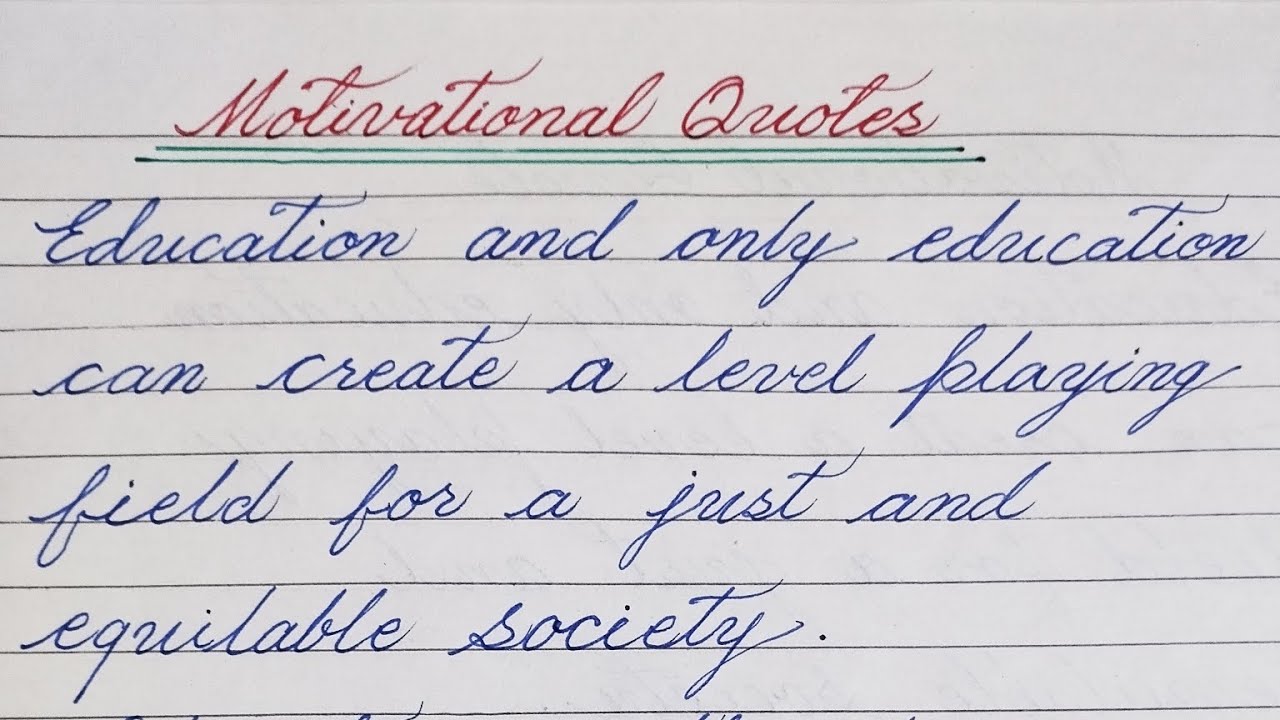 Motivational Quotes
Education and only education
can create a level playing
field for a just and
equilable society.